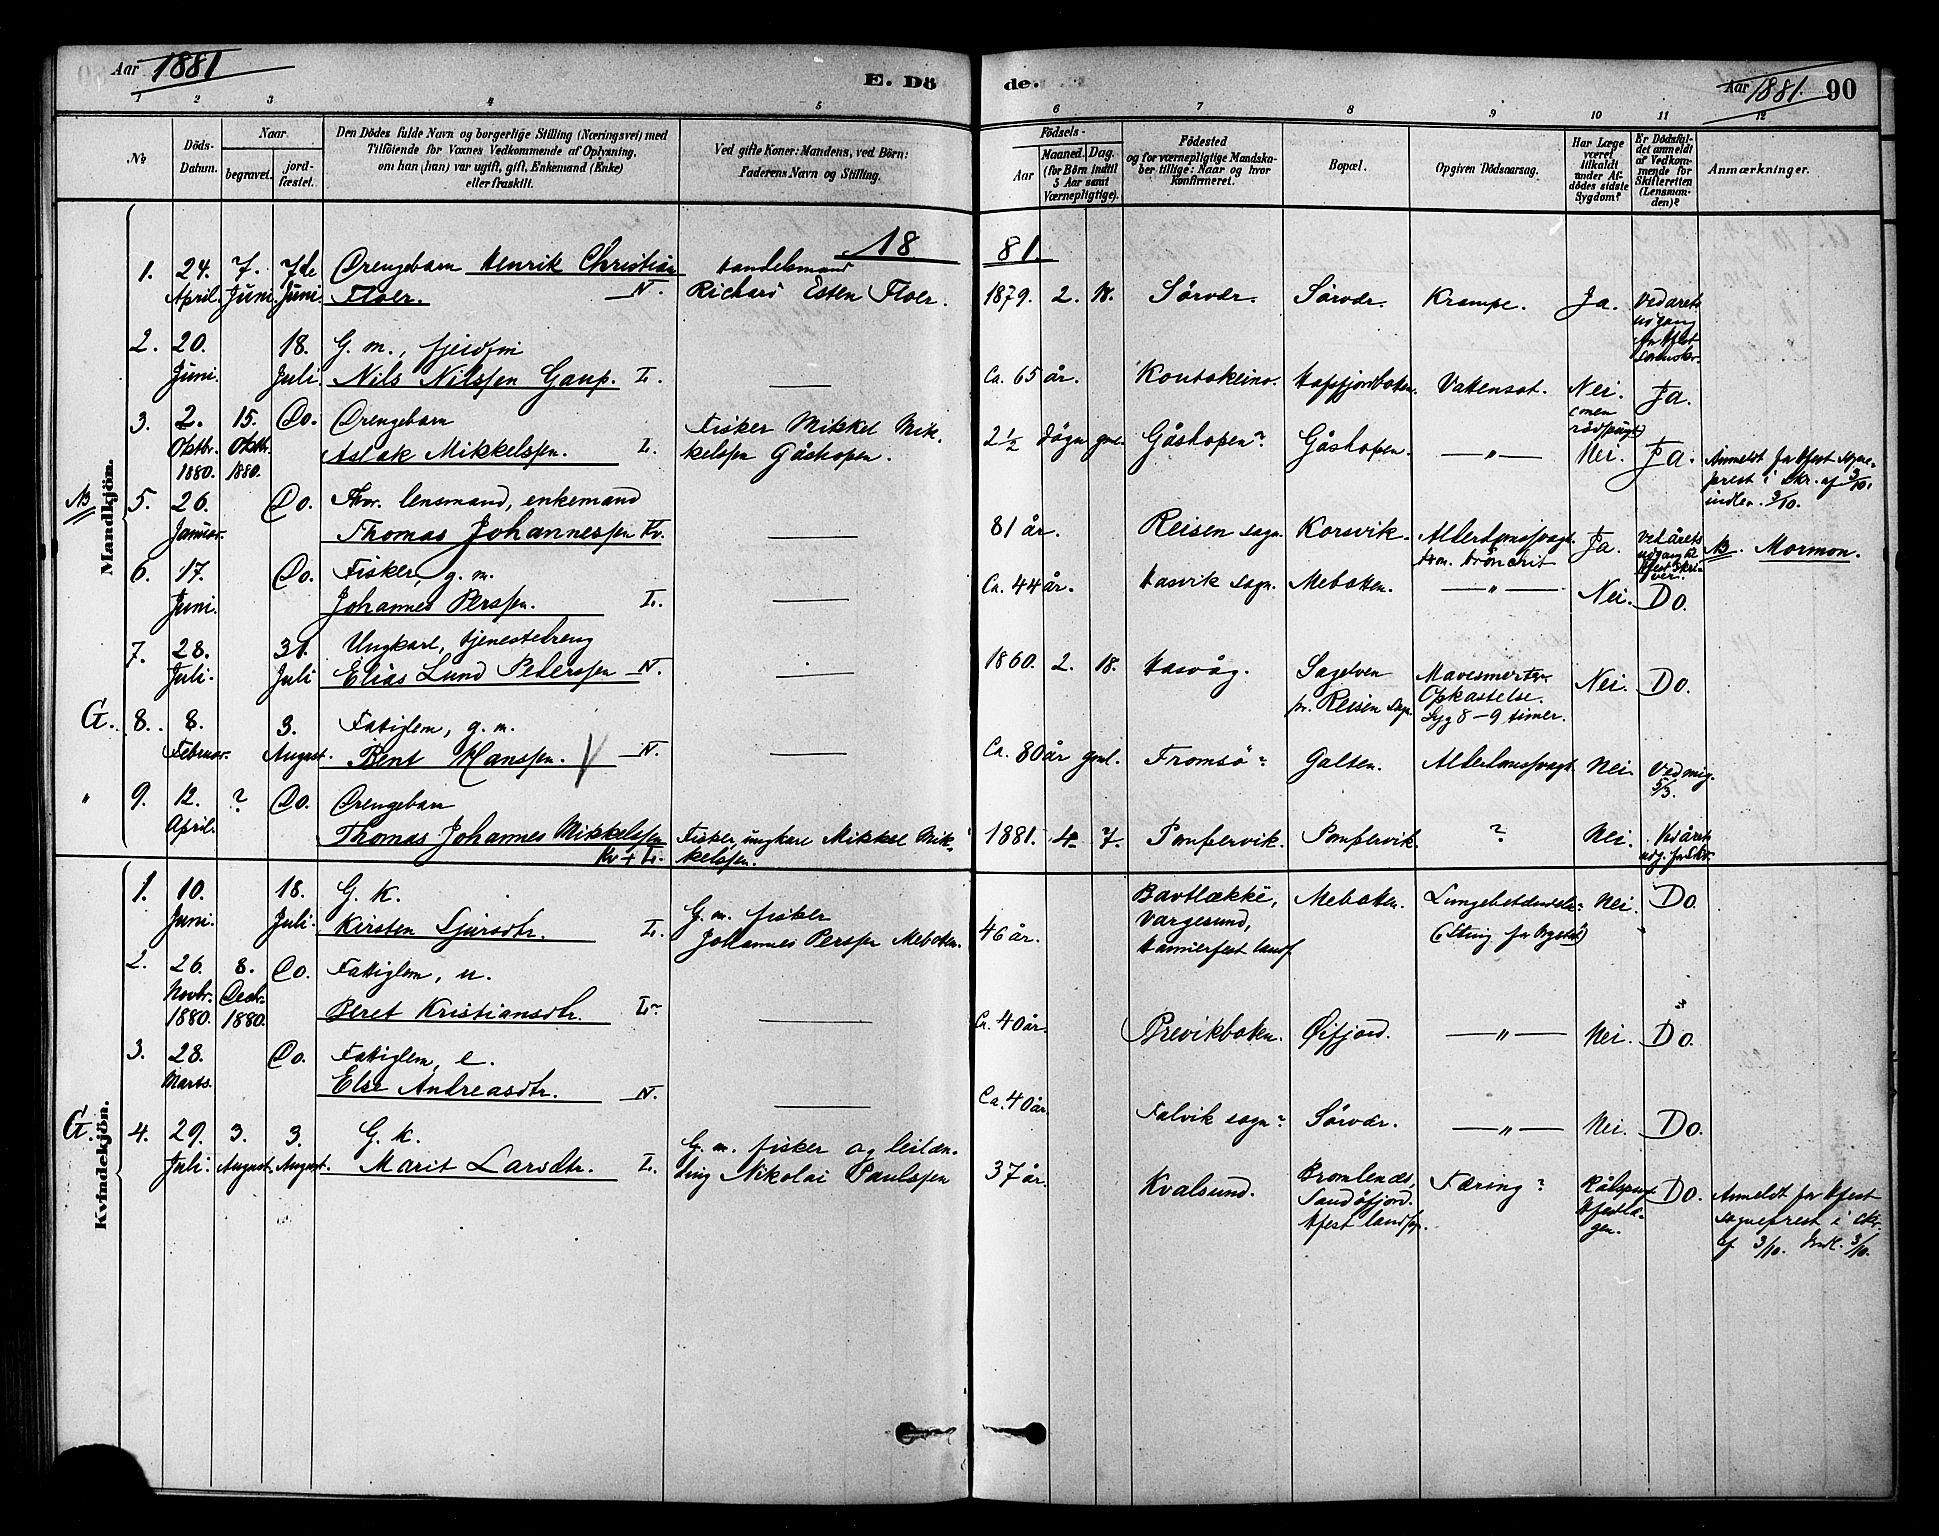 Aar 1881
E. Döde.
Aar 1881. 90
1 2 3 4 5 6 7 8 9 10 11 12
No.
Döds-Datum.
Naar
begravet.
jordfæstet.
Den Dödes fulde Navn og borgerlige Stilling (Næringsvei) med
Tilföiende for Voxnes Vedkommende af Oplysning,
om han (hun) var ugift, gift, Enkemand (Enke)
eller fraskilt.
Ved gifte Koner: Mandens, ved Börn:
Faderens Navn og Stilling.
Födsels-
Aar
Maaned. Dag.
(for Börn indtil
5 Aar samt
Værnepligtige).
Födested
og for værnepligtige Mandskaber
tillige: Naar og hvor
Konfirmeret.
Bopæl.
Opgiven Dödsaarsag.
Har Læge
været
tilkaldt
under Afdödes
sidste
Sygdom?
Er Dödsfaldet
anmeldt
af Vedkommende
for
Skifteretten
(Lensmanden)?
Anmærkninger.
1881.
Mandkjön.
1. 24. April. 7. Juni. 7de Juni. Drengebarn Henrik Christian Floer. N. Handelsmand Richard Esten Floer. 1879. 2. 18. Sörvær. Sörvær. Krampe. Ja. Ved årets
2. 20. Juni. 18. Juli. G. m., fjeldfin Nils Nilssen Gaup. L. — Ca. 65 år. Koutokeino. Vattersot. Nei. Ja.
3. 2. Oktbr. 1880. 15. Oktbr. 1880. Do. Drengebarn Aslak Mikkelssen. L. Fisker Mikkel Mikkelssen Gåshopen. 2 1/2 døgn gml. Gåshopen? Gåshopen. —"— Nei. Ja. Anmeldt fra Hfest sogneprest i skr. af 3/10, indlev. 3/10.
NB 5. 26. Januar. Do. Fhv. lensmand, enkemand Thomas Johannessen Kv. — 81 år. Reisen sogn. Korsvik. Alderdomssvagh. Ja. Ved årets NB. Mormon.
6. 17. Juni. Do. Fisker, g. m. Johannes Perssen. L. — Ca. 44 år. Hasvik sogn. Mebotten. —"— Nei. Do.
7. 28. Juli. 31. Juli Ungkarl, tjenestedreng Elias Lund Pederssen N. — 1860. 2. 18. Hasvåg. Sagelven pr. Reisen Mavesmerter. Opkastelse. Syg 8–9 timer. Nei. Do.
G. 8. 8. Februar. 3. August. Fattiglem, g. m. Bent Hanssen. V N. — Ca. 80 år gml. Tromsö? Galten. Alderdomssvagh. Nei. Ved mig 5/3.
" 9. 12. April. ? Do. Drengebarn Thomas Johannes Mikkelssen Kv + L. Fisker, ungkarl Mikkel Mikkelssen. 1881. 4. 7. Ponfervik. Ponfervik. ? Nei. Ved årets
Kvindekjön.
1. 10. Juni. 18. Juli. G. k. Kirsten Sjursdtr. L. G. m. fisker Johannes Perssen Mebotten. 46 år. Vargesund, Hammerfest lands. Mebotten. Lungebetændelse? Nei. Do.
2. 26. Novbr. 1880. 8. Decbr. 1880. Do. Fattiglem, u. Beret Kristiansdtr. L. — Ca. 40 år. Brevikbotten. Øifjord. —"— Nei. Do.
3. 28. Marts. Do. Fattiglem, e. Else Andreasdtr. N. — Ca. 40 år. Talvik sogn? Sörvær. —"— Nei. Do.
G. 4. 29. Juli. 3. August. 3. August. G. k. Marit Larsdtr. L. G. m. fisker og leilænding Nikolai Paulssen 37 år. Kvalsund. Sandöfjord. Hfest landssogn. Tæring? Do. Anmeldt fra Hfest sogneprest i skr. af 3/10. Indl. 3/10.